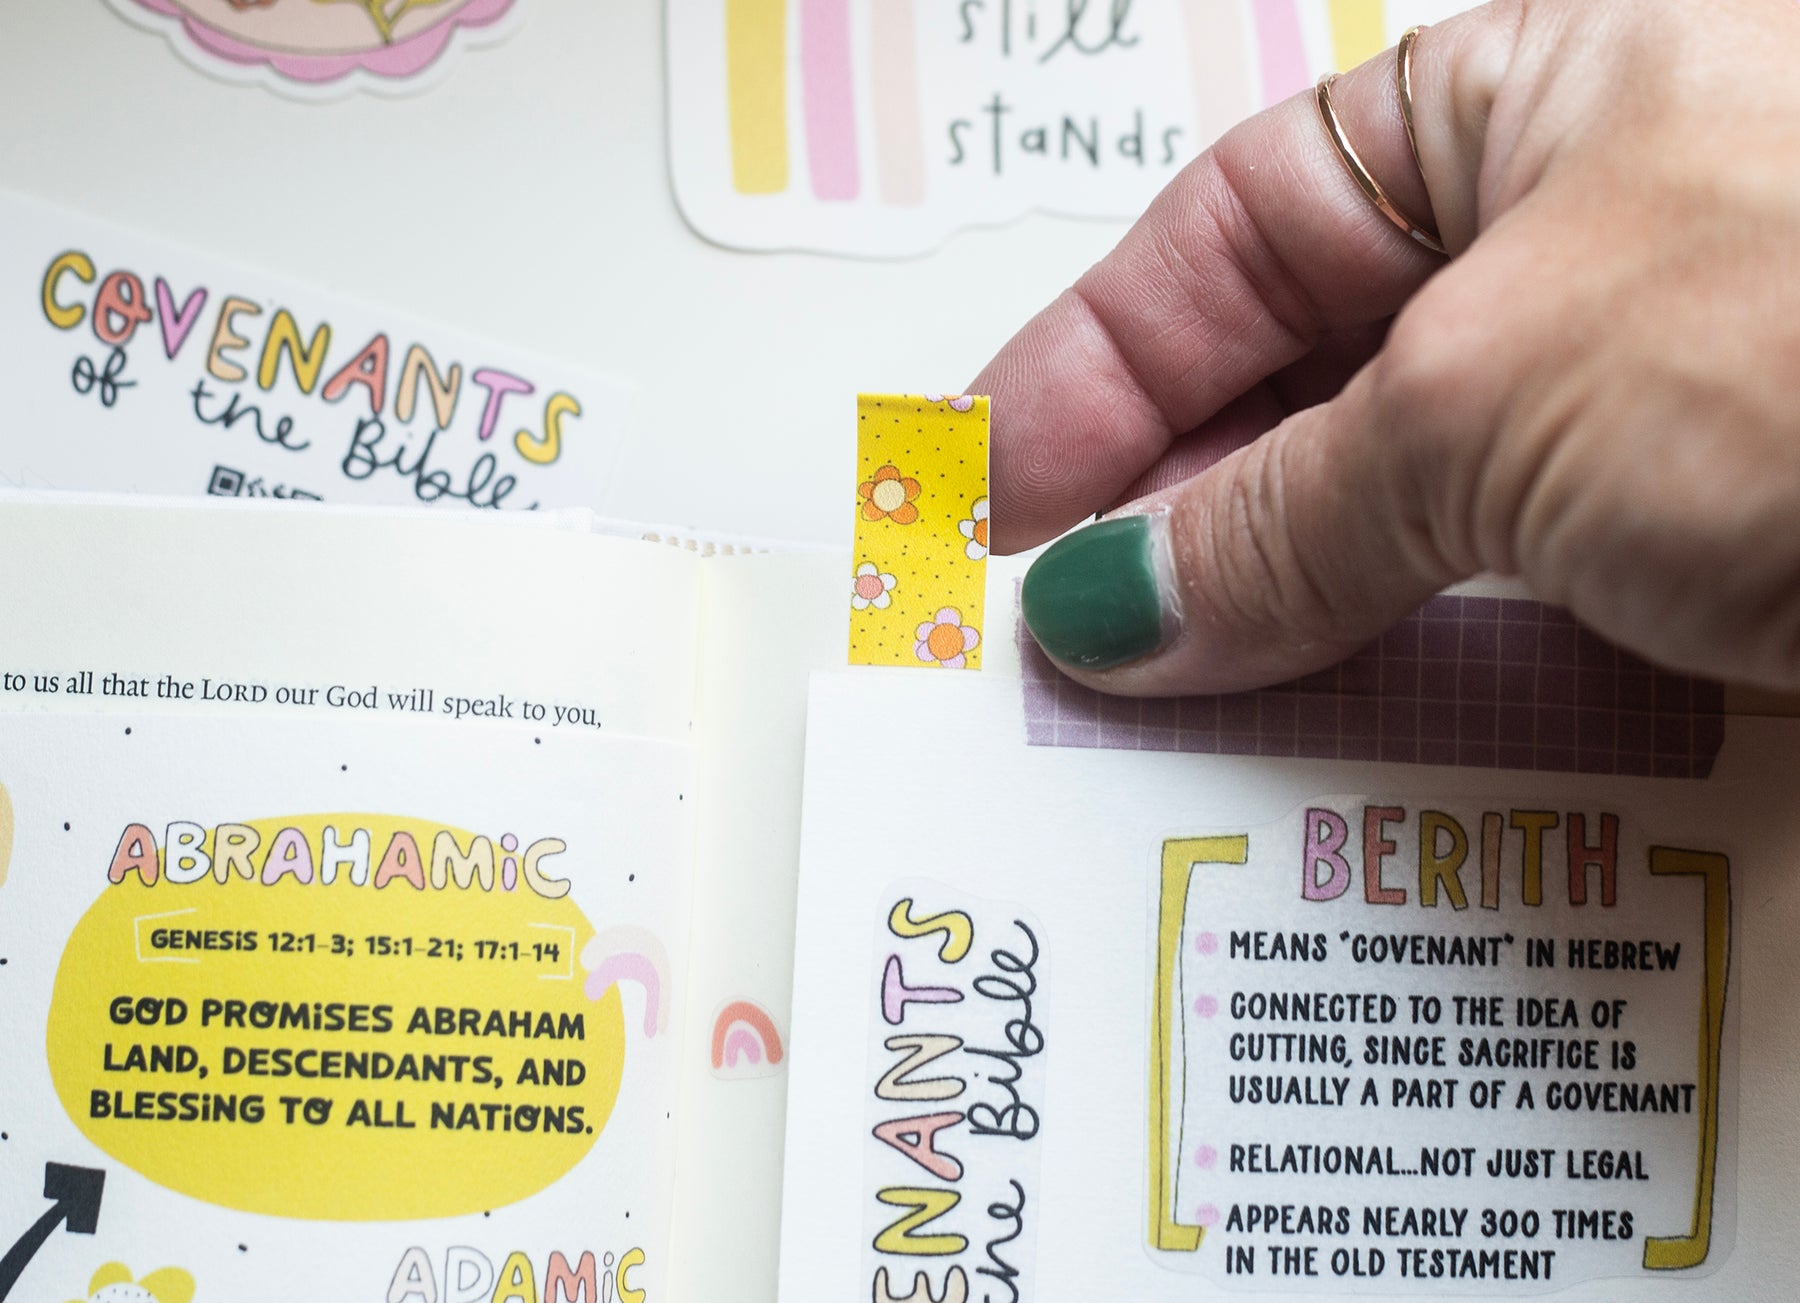 still
stands
COVENANTS
of the Bible
to us all that the LORD our God will speak to you,
ABRAHAMiC
GENESiS 12:1-3; 15:1-21; 17:1-14
GOD PROMiSES ABRAHAM
LAND, DESCENDANTS, AND
BLESSiNG TO ALL NATiONS.
ADAMiC
ENANTS
the Bible
BERITH
MEANS "COVENANT" IN HEBREW
CONNECTED TO THE IDEA OF
CUTTING, SINCE SACRIFICE IS
USUALLY A PART OF A COVENANT
RELATIONAL...NOT JUST LEGAL
APPEARS NEARLY 300 TIMES
IN THE OLD TESTAMENT